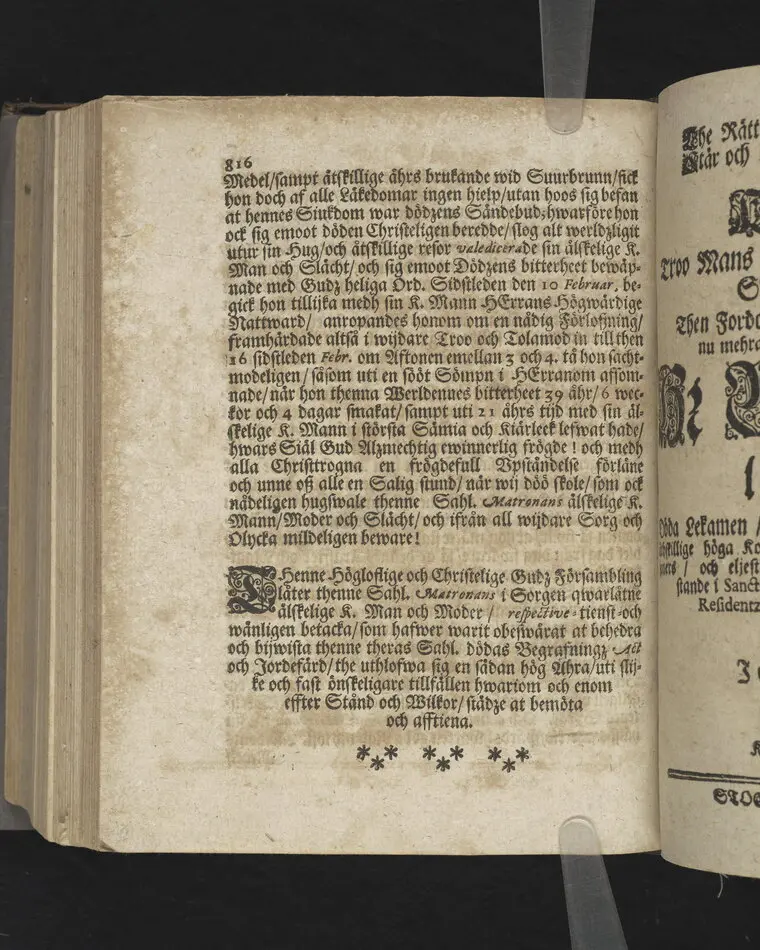 816
Medel/sampt åtskillige åhrs brukande wid Suurbrunn/fick
hon doch af alle Läkedomar ingen hielp/utan hoos sig befan
at hennes Siukdom war dödzens Sändebud; hwarföre hon
ock sig emoot döden Christeligen beredde/slog alt werldzligit
utur sin Hug/och åtskillige resor valedicerade sin älskelige K.
Man och Slächt/och sig emoot Dödzens bitterheet bewäp-
nade med Gudz heliga Ord. Sidstleden den 10 Februar. be-
gick hon tillijka medh sin K. Mann HErrans Högwärdige
Nattward/ anropandes honom om en nådig Förlossning/
framhärdade altså i wijdare Troo och Tolamod in till then
16 sidstleden Febr. om Afftonen emellan 3 och 4. tå hon sacht-
modeligen/såsom uti en sööt Sömpn i HErranom affsom-
nade/när hon thenna Werldennes bitterheet 39 åhr/6 wec-
kor och 4 dagar smakat/sampt uti 21 åhrs tijd med sin äl-
skelige K. Mann i största Sämia och Kiärleek lefwat hade/
hwars Siäl Gud Alzmechtig ewinnerlig frögde! och medh
alla Christtrogna en frögdefull Vpståndelse förläne
och unne oß alle en Salig stund/när wij döö skole/som ock
nådeligen hugswale thenne Sahl. Matronans älskelige K.
Mann/Moder och Slächt/och ifrån all wijdare Sorg och
Olycka mildeligen beware!
Henne Höglofflige och Christelige Gudz Försambling
låter thenne Sahl. Matronans i Sorgen qwarlåtne
älskelige K. Man och Moder/ respective-tienst-och
wänligen betacka/som hafwer warit obeswärat at behedra
och bijwista thenne theras Sahl. dödas Begrafningz-Act
och Jordefärd/the uthlofwa sig en sådan hög Ähra/uti slij-
ke och fast önskeligare tillfällen hwariom och enom
effter Stånd och Wilkor/städze at bemöta
och afftiena.
The Rätt
Står och
Troo Mans
Then Fordo
nu mehra
Döda Lekamen /
åthskillige höga Ko
och eljest
stande i Sanct
Residentz
STOC